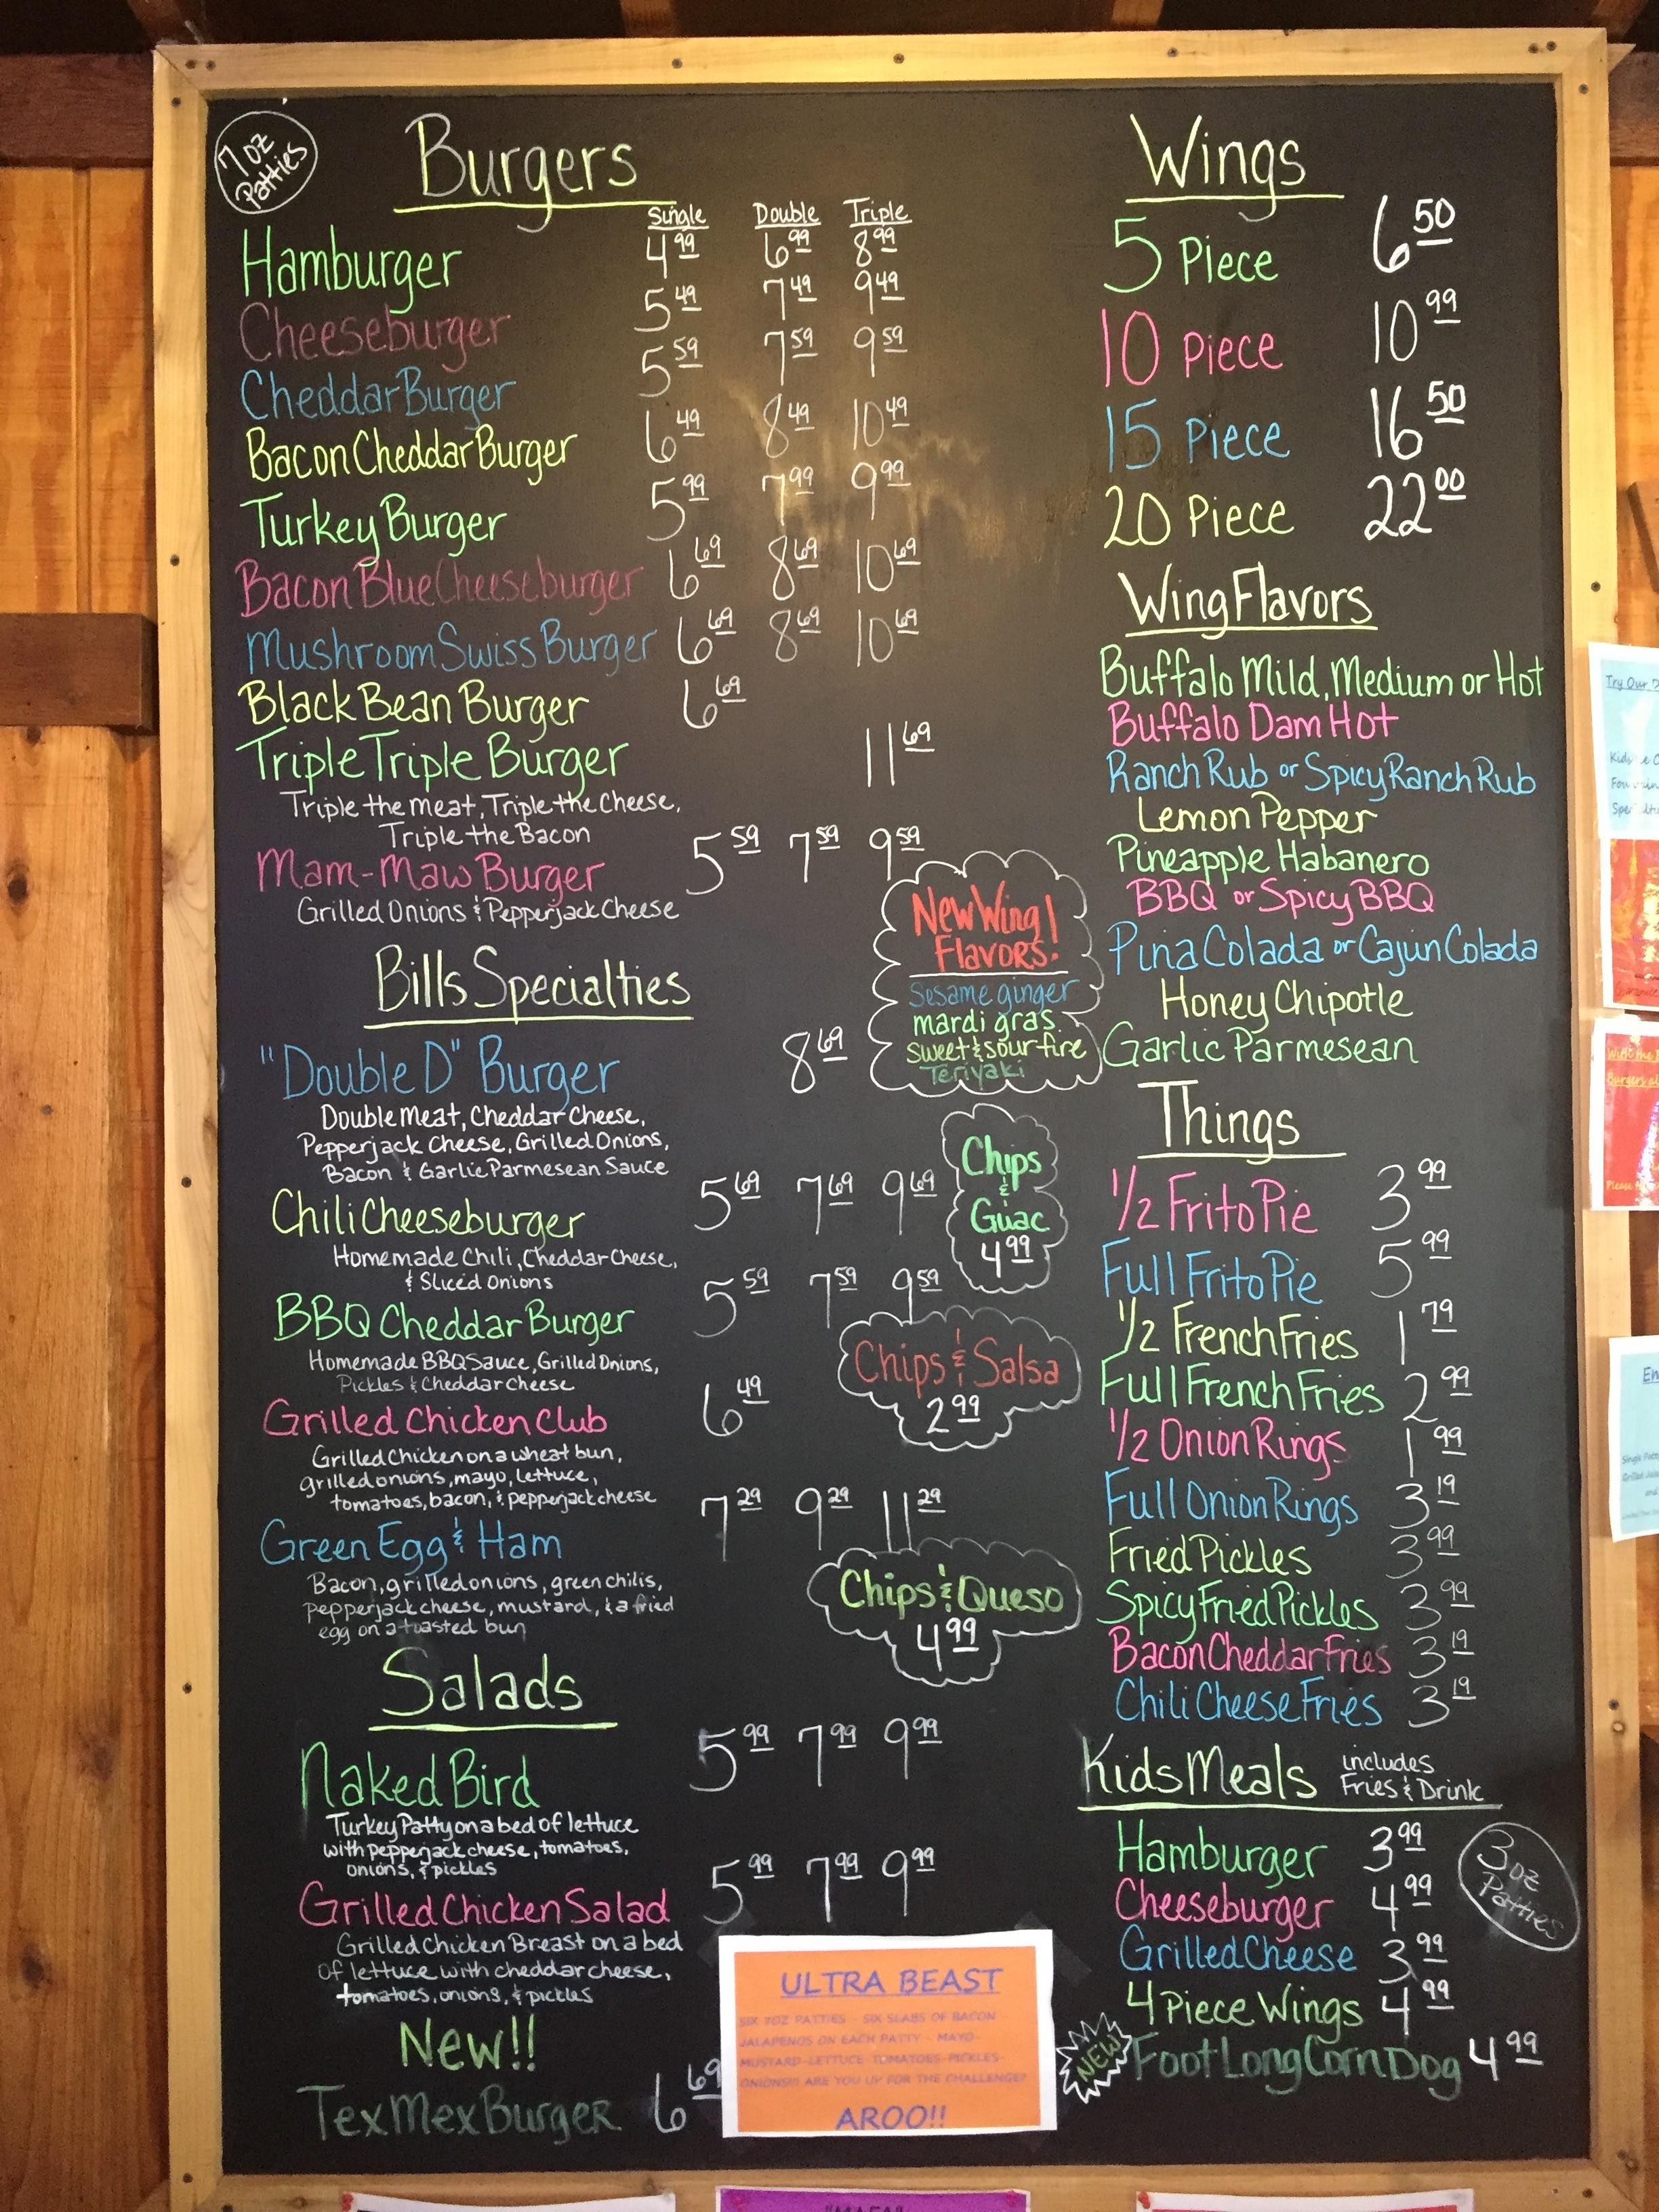 7 oz
Patties
Burgers
Single Double Triple
Hamburger 4.99 6.99 8.99
Cheeseburger 5.49 7.49 9.49
Cheddar Burger 5.59 7.59 9.59
Bacon Cheddar Burger 6.49 8.49 10.49
Turkey Burger 5.99 7.99 9.99
Bacon Blue Cheeseburger 6.69 8.69 10.69
Mushroom Swiss Burger 6.69 8.69 10.69
Black Bean Burger 6.69
Triple Triple Burger 11.69
Triple the meat, Triple the Cheese,
Triple the Bacon
Mam-Maw Burger 5.59 7.59 9.59
Grilled Onions & Pepperjack Cheese
Bills Specialties
"Double D" Burger 8.69
Double Meat, Cheddar Cheese,
Pepperjack Cheese, Grilled Onions,
Bacon & Garlic Parmesean Sauce
Chili Cheeseburger 5.69 7.69 9.69
Homemade Chili, Cheddar Cheese,
& Sliced Onions
BBQ Cheddar Burger 5.59 7.59 9.59
Homemade BBQ Sauce, Grilled Onions,
Pickles & Cheddar Cheese
Grilled Chicken Club 6.49
Grilled Chicken on a wheat bun,
grilled onions, mayo, lettuce,
tomatoes, bacon, & pepperjack cheese
Green Egg & Ham 7.29 9.29 11.29
Bacon, grilled onions, green chilis,
pepperjack cheese, mustard, & a fried
egg on a toasted bun
Salads
Naked Bird 5.99 7.99 9.99
Turkey Patty on a bed of lettuce
with pepperjack cheese, tomatoes,
onions, & pickles
Grilled Chicken Salad 5.99 7.99 9.99
Grilled Chicken Breast on a bed
of lettuce with cheddar cheese,
tomatoes, onions, & pickles
New!!
Tex Mex Burger 6.69
New Wing
Flavors!
Sesame ginger
mardi gras
Sweet & sour fire
Teriyaki
Chips
&
Guac
4.99
Chips & Salsa
2.99
Chips & Queso
4.99
ULTRA BEAST
SIX 7OZ PATTIES - SIX SLABS OF BACON
JALAPENOS ON EACH PATTY - MAYO-
MUSTARD-LETTUCE-TOMATOES-PICKLES-
ONIONS!!! ARE YOU UP FOR THE CHALLENGE?
AROO!!
Wings
5 Piece 6.50
10 Piece 10.99
15 Piece 16.50
20 Piece 22.00
Wing Flavors
Buffalo Mild, Medium or Hot
Buffalo Dam Hot
Ranch Rub or Spicy Ranch Rub
Lemon Pepper
Pineapple Habanero
BBQ or Spicy BBQ
Pina Colada or Cajun Colada
Honey Chipotle
Garlic Parmesean
Things
1/2 Frito Pie 3.99
Full Frito Pie 5.99
1/2 French Fries 1.79
Full French Fries 2.99
1/2 Onion Rings 1.99
Full Onion Rings 3.19
Fried Pickles 3.99
Spicy Fried Pickles 3.99
Bacon Cheddar Fries 3.19
Chili Cheese Fries 3.19
Kids Meals includes
Fries & Drink
Hamburger 3.99
Cheeseburger 4.99
Grilled Cheese 3.99
4 Piece Wings 4.99
NEW Foot Long Corn Dog 4.99
3 oz
Patties
Try Our